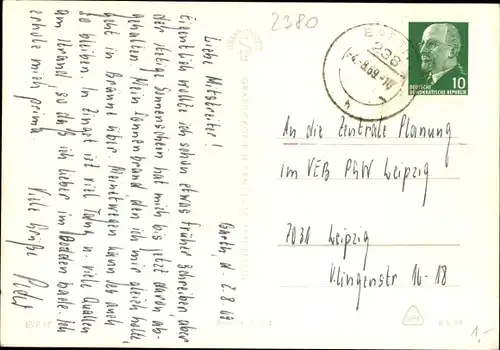 2380
238
-4.-8.69-10
h
10
DEUTSCHE
DEMOKRATISCHE REPUBLIK
Barth, d. 2.8.69
Liebe Mitstreiter!
Eigentlich wollte ich schon etwas früher schreiben, aber
der stetige Sonnenschein hat mich bis jetzt davon ab-
gehalten. Mein Sonnenbrand, den ich mir gleich holte,
geht in Bräune über. Meinetwegen kann das auch
so bleiben. In Zingst ist viel Tang u. viele Quallen
am Strand, so daß ich lieber im Bodden bade. Ich
erhole mich prima.
Viele Grüße
An die Zentrale Planung
im VEB PGW Leipzig
7031 Leipzig
Klingenstr 16-18
1,-